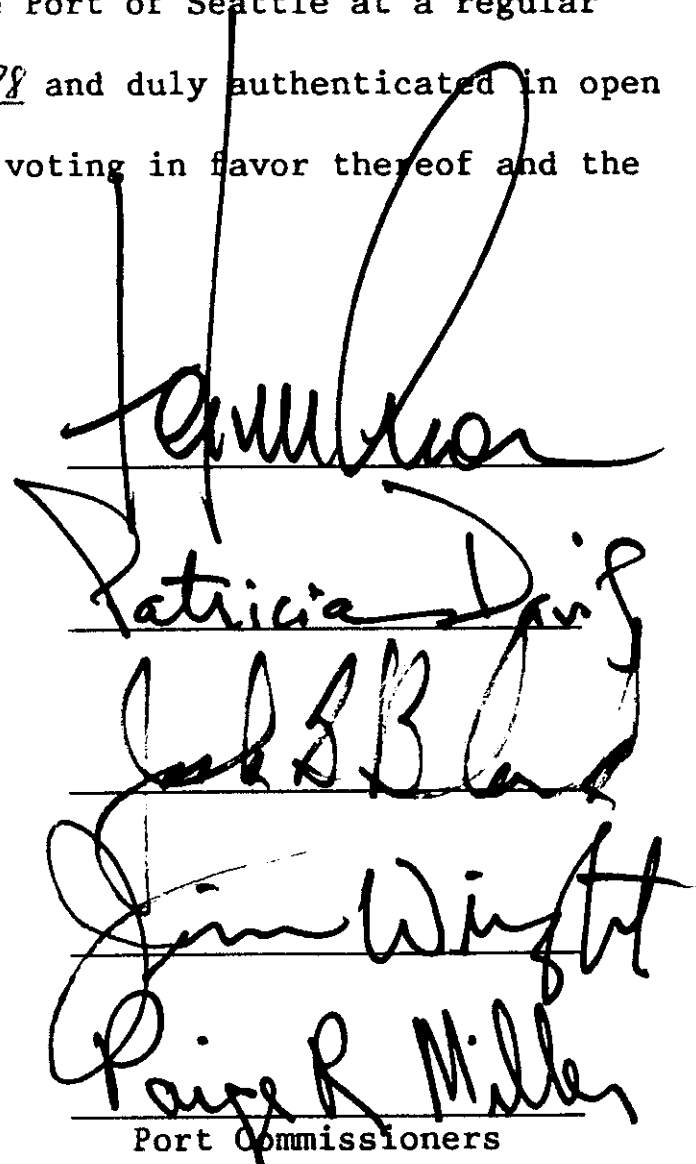 Port of Seattle at a regular
and duly authenticated in open
voting in favor thereof and the
Patricia Davis
Jim Wright
Paige R Miller
Port Commissioners